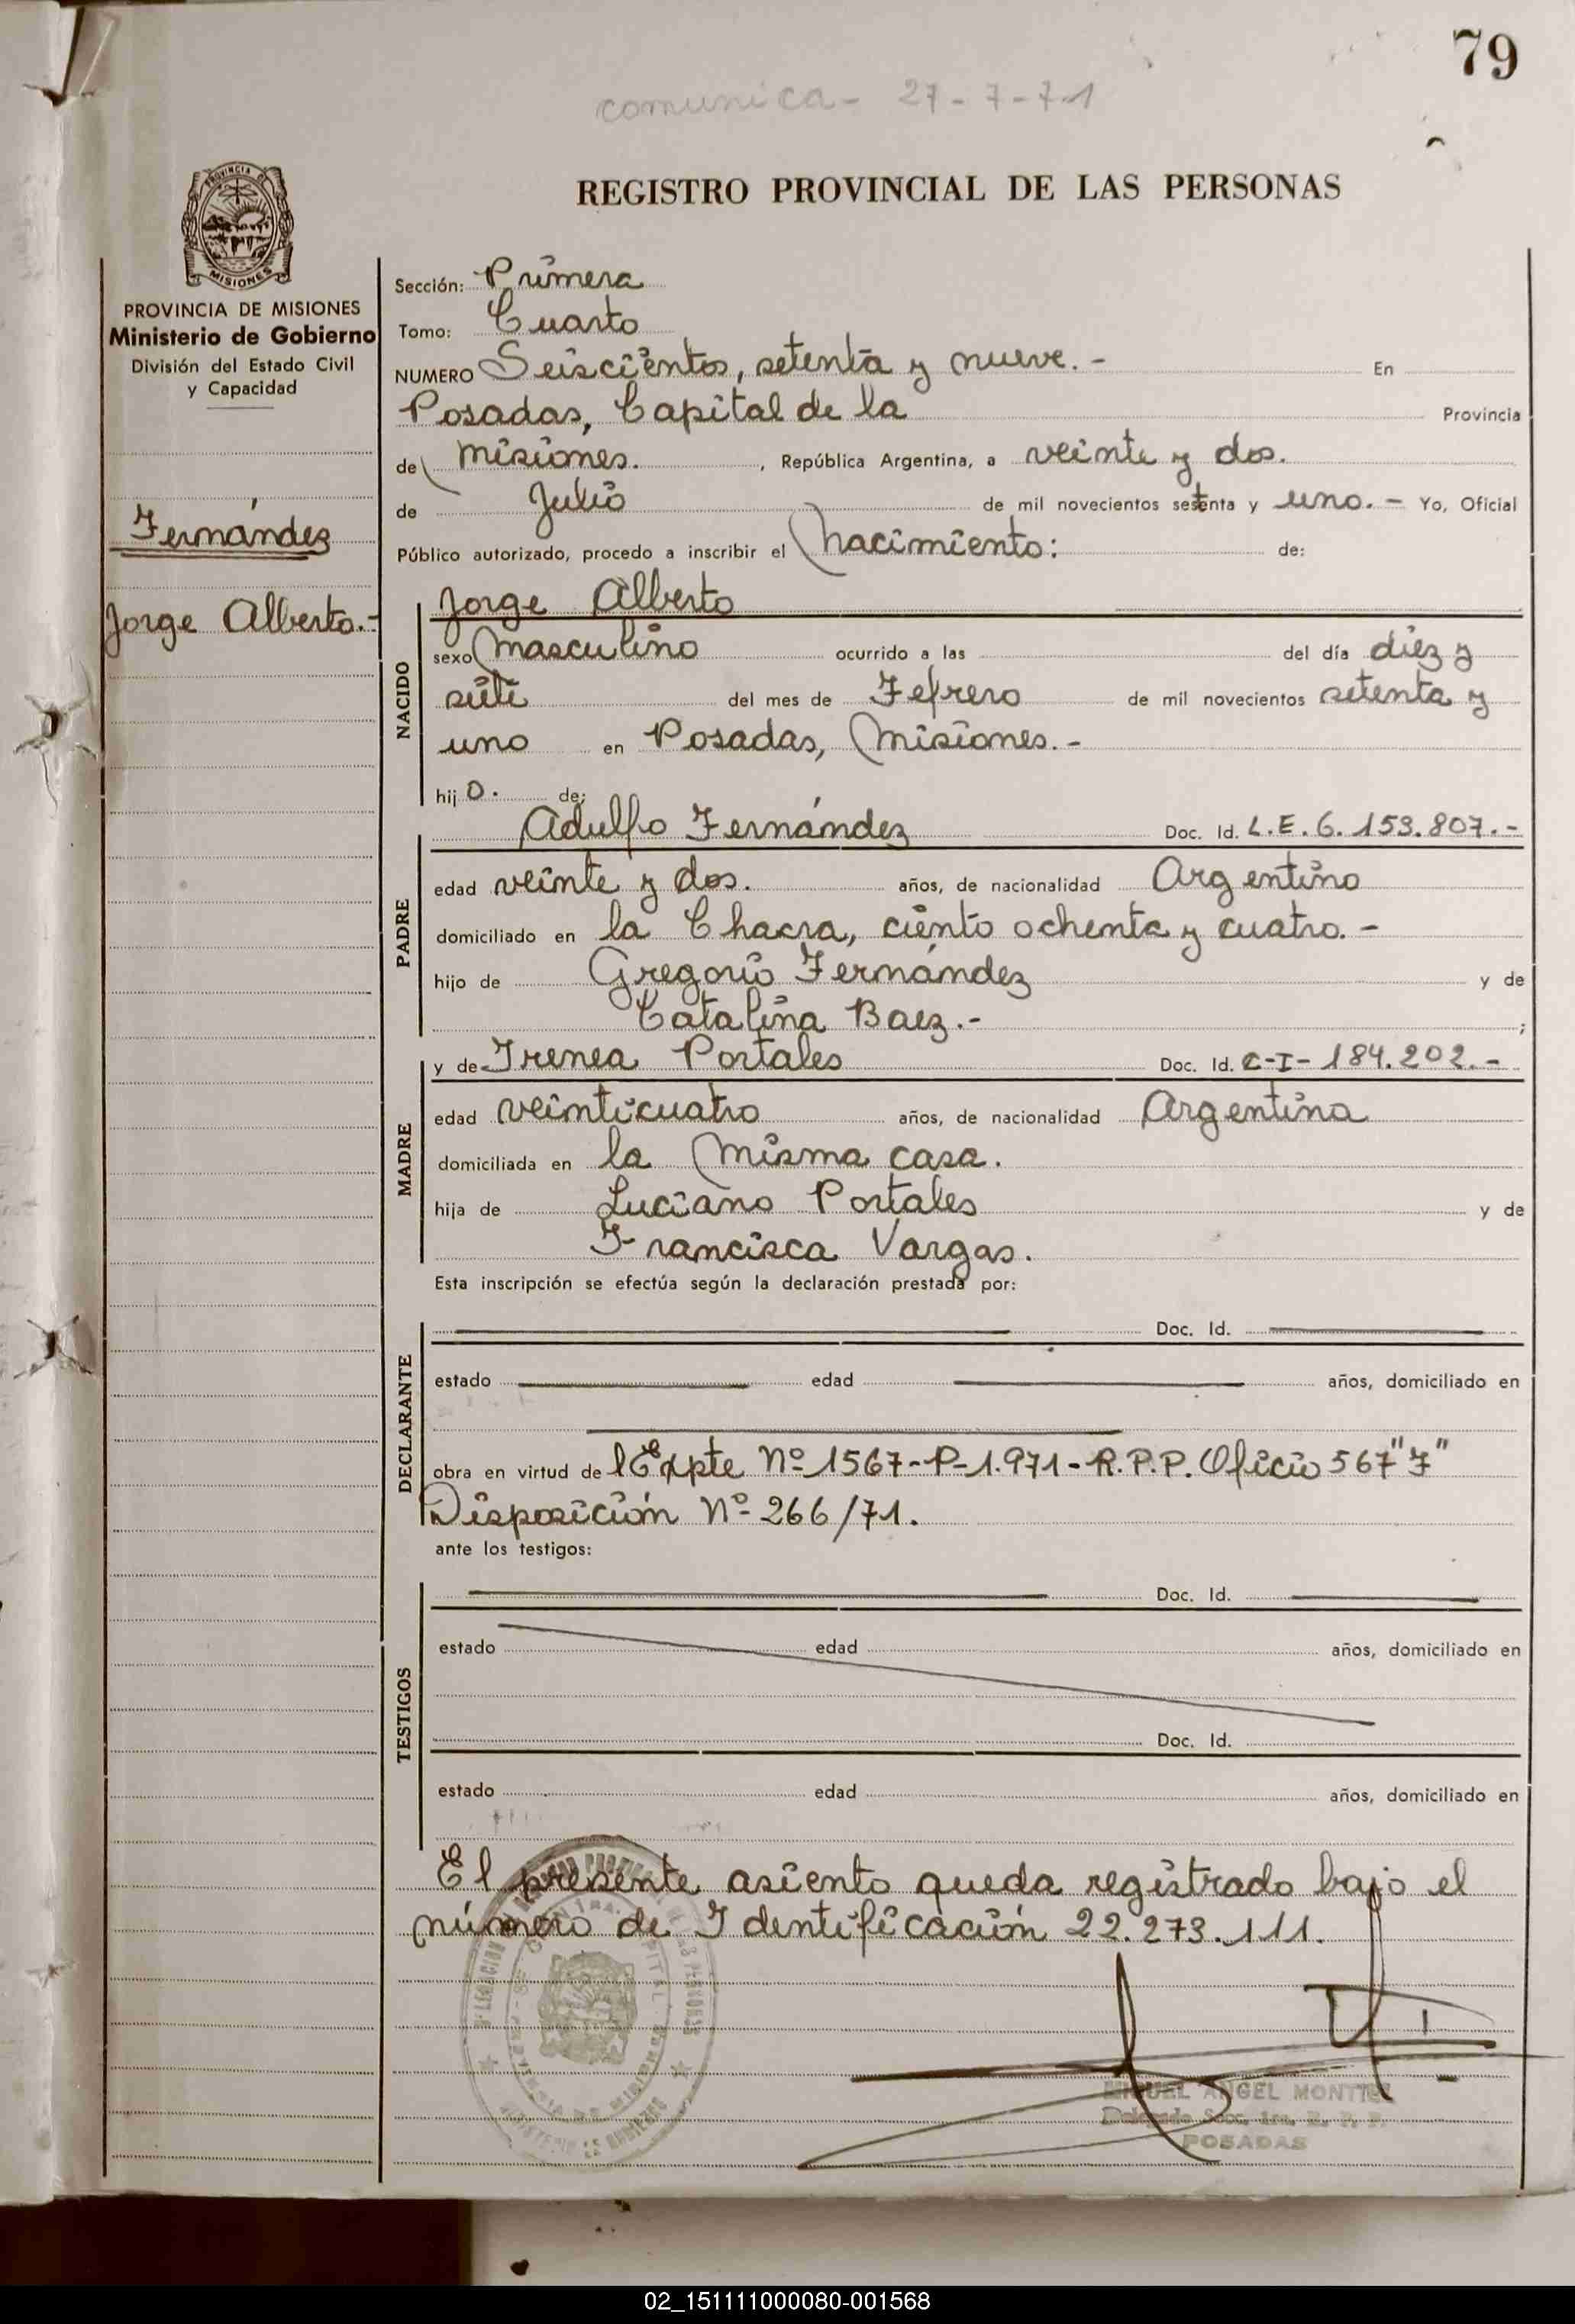 79
comunica - 27-7-71
REGISTRO PROVINCIAL DE LAS PERSONAS
PROVINCIA DE MISIONES
Ministerio de Gobierno
División del Estado Civil
y Capacidad
Fernández
Jorge Alberto.-
Sección: Primera
Tomo: Cuarto
NUMERO Seiscientos, setenta y nueve. - En
Posadas, Capital de la Provincia
de Misiones. , República Argentina, a veinte y dos.
de Julio de mil novecientos setenta y uno. - Yo, Oficial
Público autorizado, procedo a inscribir el nacimiento: de:
NACIDO
Jorge Alberto
sexo masculino ocurrido a las del día diez y
siete del mes de Febrero de mil novecientos setenta y
uno en Posadas, Misiones. -
hij o. de:
PADRE
Adulfo Fernández Doc. Id. L.E. 6.153.807.-
edad veinte y dos. años, de nacionalidad Argentino
domiciliado en la Chacra, ciento ochenta y cuatro. -
hijo de Gregorio Fernández y de
Catalina Baez.- ;
MADRE
y de Irenea Portales Doc. Id. C-I- 184.202.-
edad veinticuatro años, de nacionalidad Argentina
domiciliada en la misma casa.
hija de Luciano Portales y de
Francisca Vargas.
Esta inscripción se efectúa según la declaración prestada por:
DECLARANTE
Doc. Id.
estado edad años, domiciliado en
obra en virtud de l Expte Nº 1567-P-1.971-R.P.P. Oficio 567 "F"
Disposición Nº 266/71.
ante los testigos:
TESTIGOS
Doc. Id.
estado edad años, domiciliado en
Doc. Id.
estado edad años, domiciliado en
El presente asiento queda registrado bajo el
número de Identificación 22.273.111.
MIGUEL ANGEL
POSADAS
02_151111000080-001568